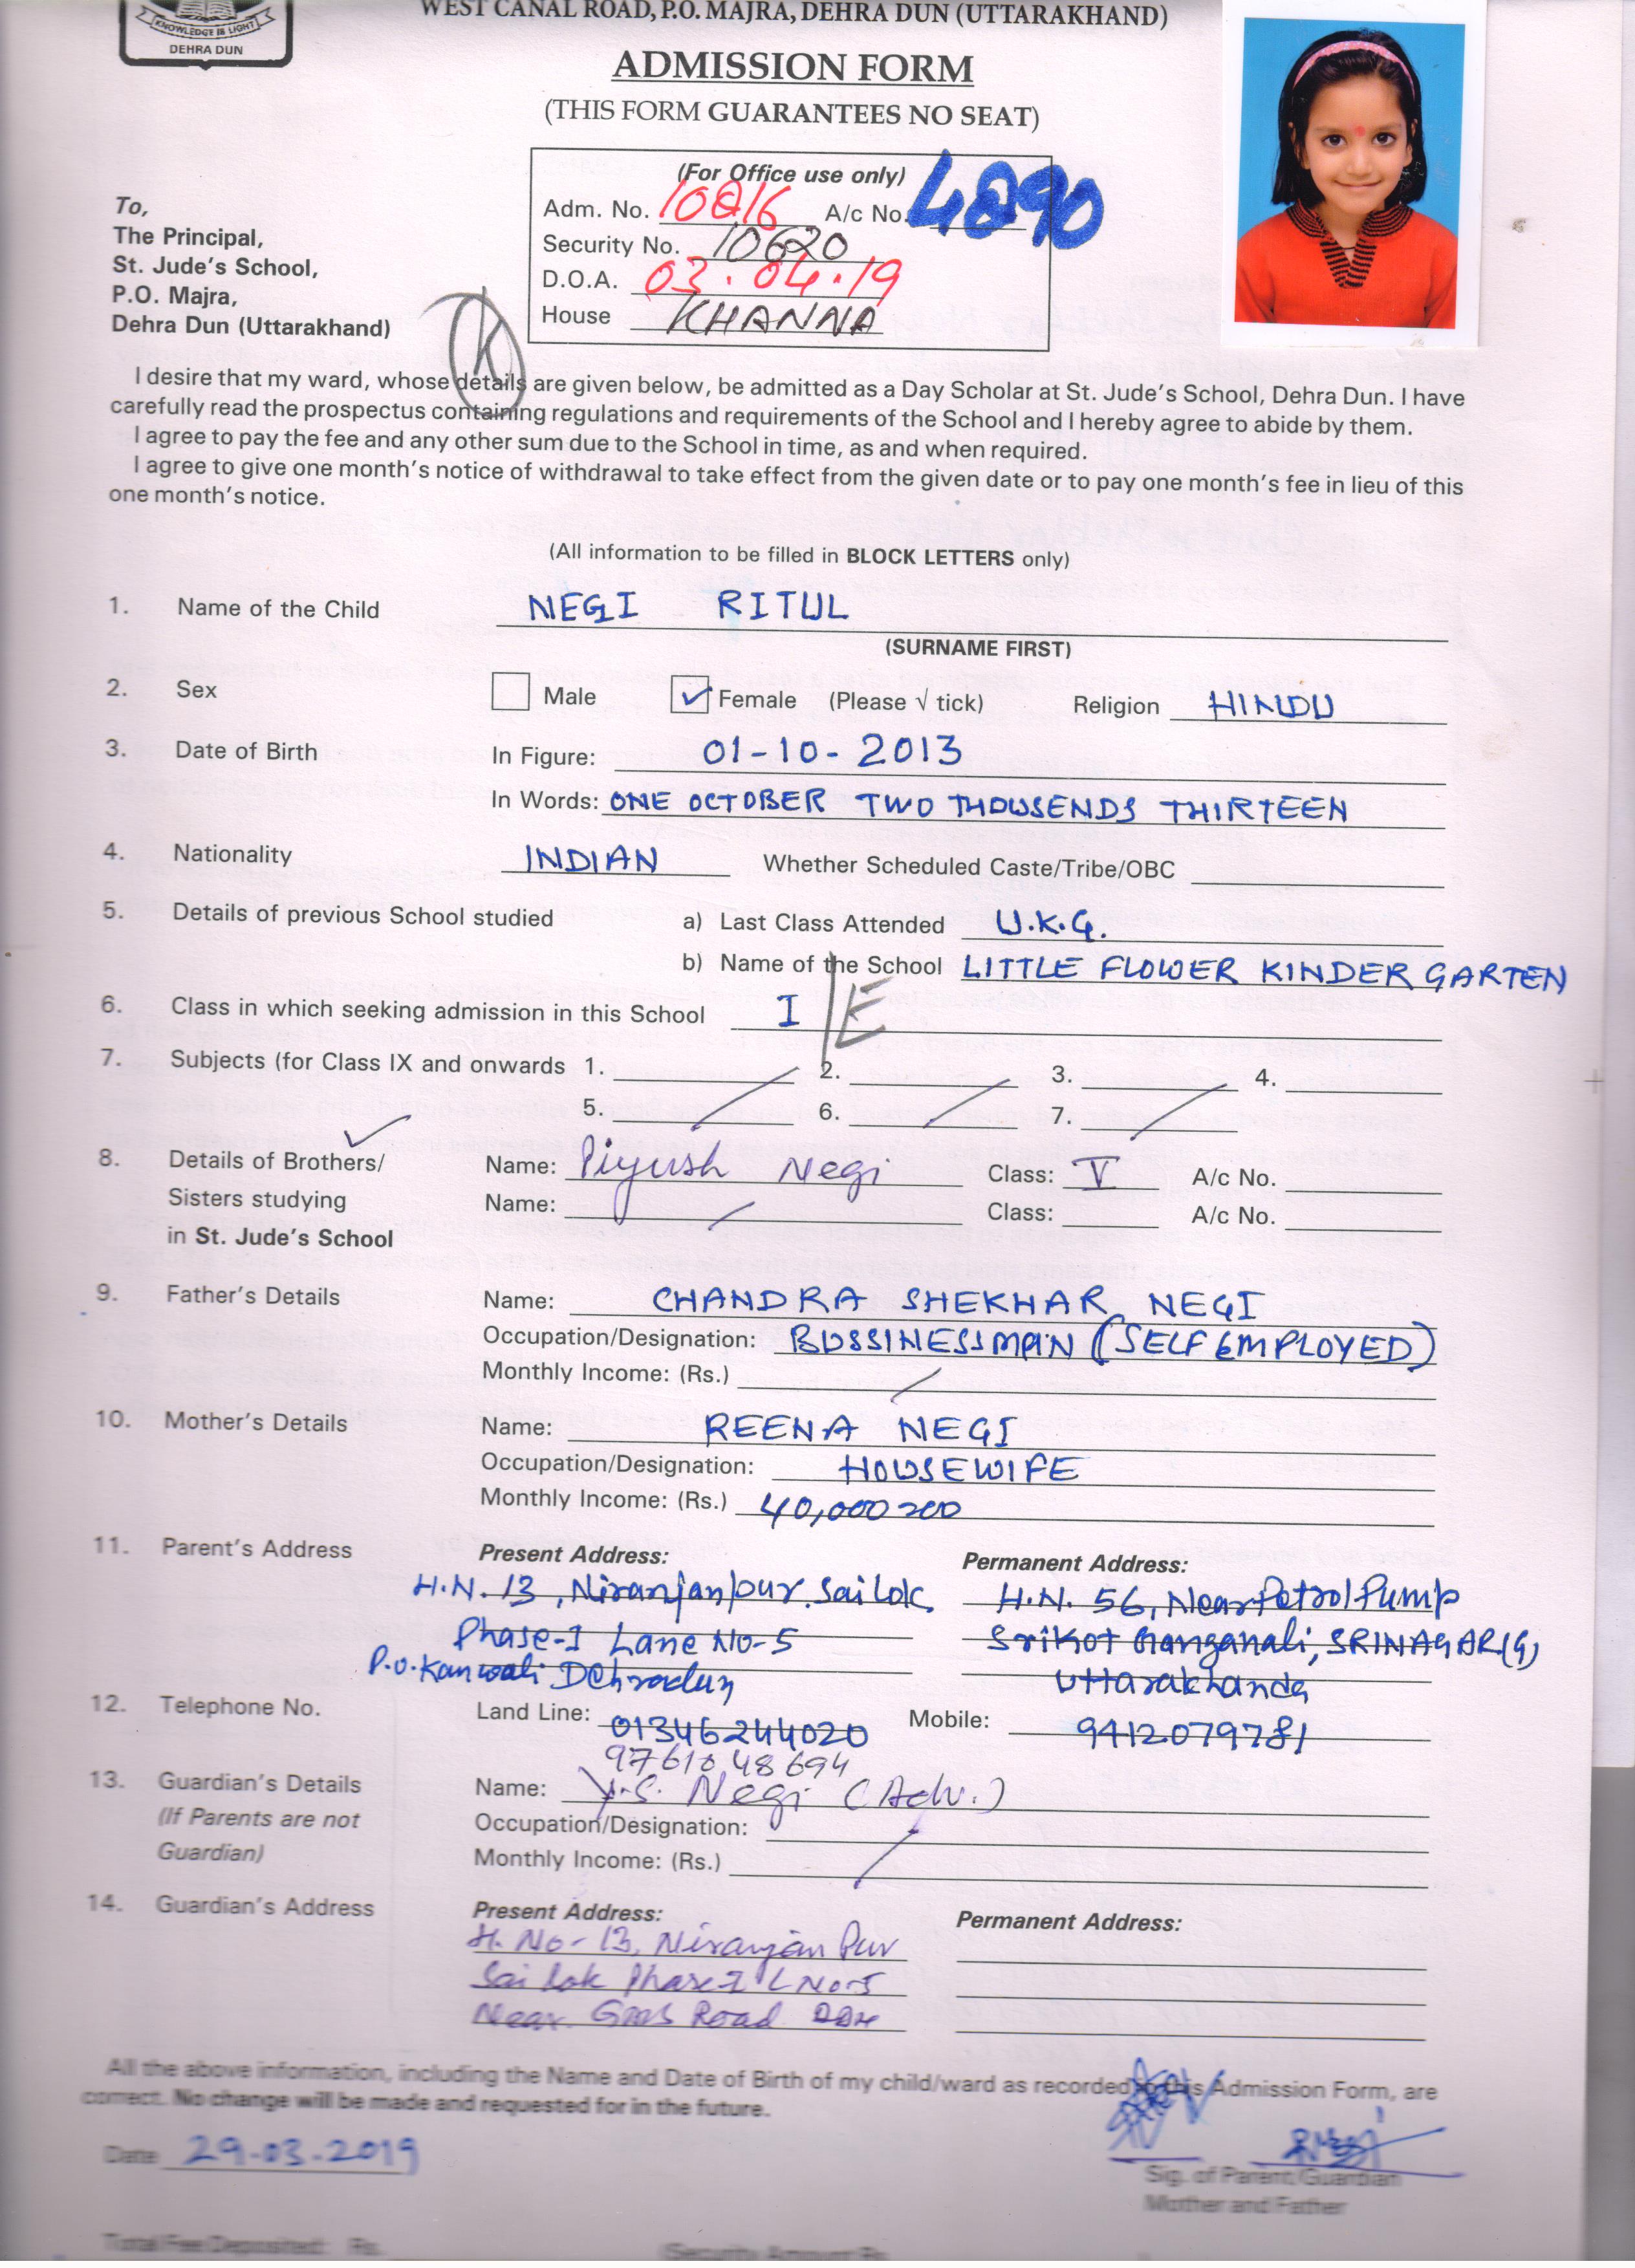 KNOWLEDGE IS LIGHT
DEHRA DUN
WEST CANAL ROAD, P.O. MAJRA, DEHRA DUN (UTTARAKHAND)
ADMISSION FORM
(THIS FORM GUARANTEES NO SEAT)
(For Office use only)
Adm. No. 10816 A/c No. 4890
Security No. 10620
D.O.A. 03.04.19
House KHANNA
To,
The Principal,
St. Jude's School,
P.O. Majra,
Dehra Dun (Uttarakhand)
K
I desire that my ward, whose details are given below, be admitted as a Day Scholar at St. Jude's School, Dehra Dun. I have
carefully read the prospectus containing regulations and requirements of the School and I hereby agree to abide by them.
I agree to pay the fee and any other sum due to the School in time, as and when required.
I agree to give one month's notice of withdrawal to take effect from the given date or to pay one month's fee in lieu of this
one month's notice.
(All information to be filled in BLOCK LETTERS only)
1. Name of the Child NEGI RITUL
(SURNAME FIRST)
2. Sex Male ✓ Female (Please √ tick) Religion HINDU
3. Date of Birth In Figure: 01-10-2013
In Words: ONE OCTOBER TWO THOUSENDS THIRTEEN
4. Nationality INDIAN Whether Scheduled Caste/Tribe/OBC
5. Details of previous School studied a) Last Class Attended U.K.G.
b) Name of the School LITTLE FLOWER KINDER GARTEN
6. Class in which seeking admission in this School I E
7. Subjects (for Class IX and onwards 1. 2. 3. 4.
5. 6. 7.
8. Details of Brothers/ Name: Piyush Negi Class: V A/c No.
Sisters studying Name: Class: A/c No.
in St. Jude's School
9. Father's Details Name: CHANDRA SHEKHAR NEGI
Occupation/Designation: BUSSINESSMAN (SELF EMPLOYED)
Monthly Income: (Rs.)
10. Mother's Details Name: REENA NEGI
Occupation/Designation: HOUSEWIFE
Monthly Income: (Rs.) 40,000
11. Parent's Address Present Address: Permanent Address:
H.N. 13, Niranjanpur, Sai Lok H.N. 56, Near Petrol Pump
Phase-I Lane No-5 Srikot Ganganali, SRINAGAR (G)
P.O. Kanwali Dehradun Uttarakhanda
12. Telephone No. Land Line: 01346244020 Mobile: 9412079781
9761048694
13. Guardian's Details Name: Y.S. Negi (Adv.)
(If Parents are not Occupation/Designation:
Guardian) Monthly Income: (Rs.)
14. Guardian's Address Present Address: Permanent Address:
H. No-13, Niranjan Pur
Sai Lok Phase I L No-5
Near GMS Road DDN
All the above information, including the Name and Date of Birth of my child/ward as recorded this Admission Form, are
correct. No change will be made and requested for in the future.
Date 29-03-2019
Sig. of Parent/Guardian
Mother and Father
Total Fee Deposited: Rs. Security Amount Rs.